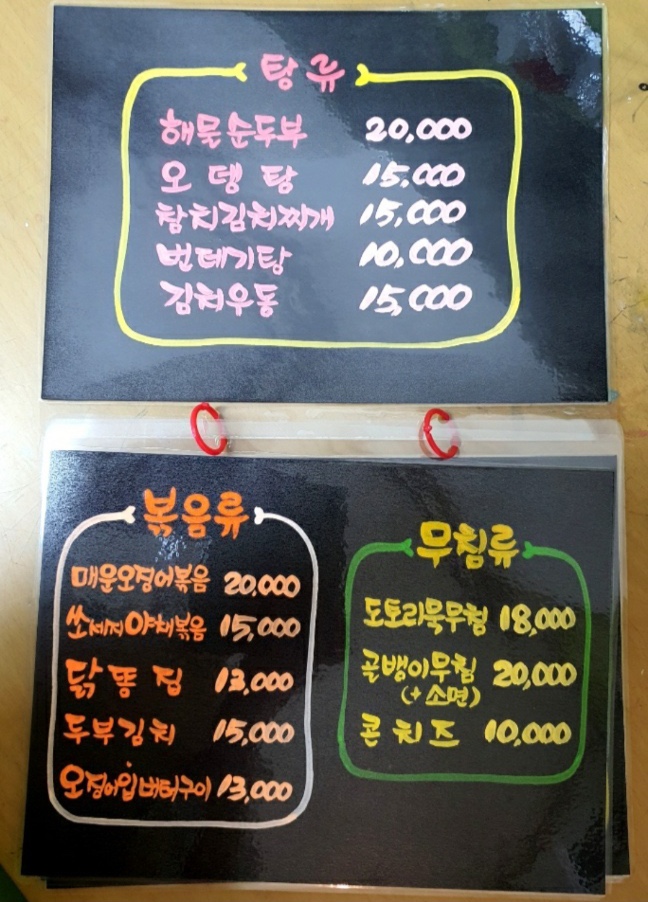 탕류
해물순두부 20,000
오뎅탕 15,000
참치김치찌개 15,000
번데기탕 10,000
김치우동 15,000
볶음류
매운오징어볶음 20,000
쏘세지야채볶음 15,000
닭똥집 13,000
두부김치 15,000
오징어입버터구이 13,000
무침류
도토리묵무침 18,000
골뱅이무침 20,000
(+소면)
콘치즈 10,000